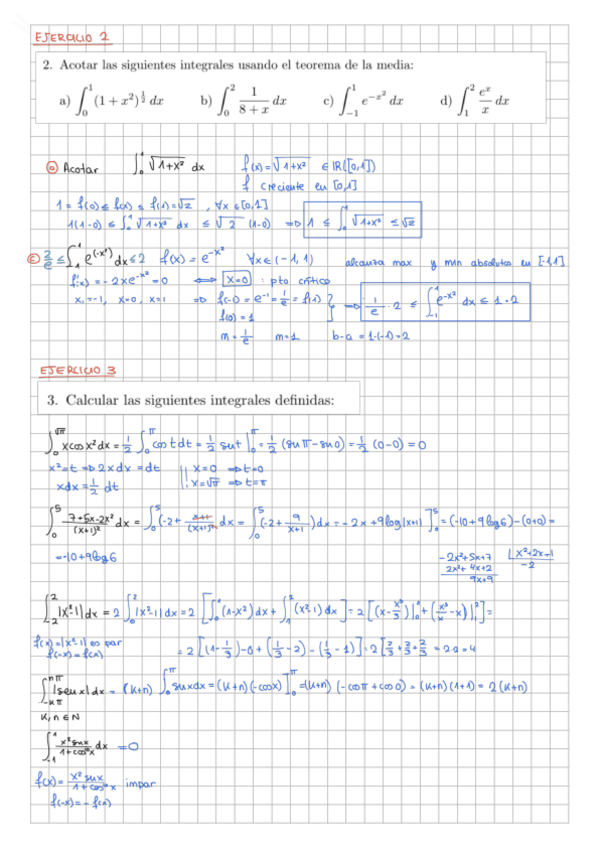 EJERCICIO 2
2. Acotar las siguientes integrales usando el teorema de la media:
a) ∫₀¹ (1 + x²)^{1/2} dx b) ∫₀² 1/(8 + x) dx c) ∫₋₁¹ e^{-x²} dx d) ∫₁² eˣ/x dx
ⓐ Acotar ∫₀¹ √(1+x²) dx f(x) = √(1+x²) ∈ IR([0,1])
f creciente en [0,1]
1 = f(0) ≤ f(x) ≤ f(1) = √2, ∀x ∈ [0,1]
1(1-0) ≤ ∫₀¹ √(1+x²) dx ≤ √2 (1-0) ⇒ 1 ≤ ∫₀¹ √(1+x²) ≤ √2
ⓒ 2/e ≤ ∫₋₁¹ e^(-x²) dx ≤ 2 f(x) = e^{-x²} ∀x ∈ (-1, 1) alcanza max y min absolutos en [-1,1]
f'(x) = -2xe^{-x²} = 0 ⇔ x=0 : pto crítico
x=-1, x=0, x=1 ⇒ f(-1) = e⁻¹ = 1/e = f(1) } ⇒ 1/e · 2 ≤ ∫₋₁¹ e^{-x²} dx ≤ 1·2
f(0) = 1
m = 1/e m = 1 b-a = 1-(-1) = 2
EJERCICIO 3
3. Calcular las siguientes integrales definidas:
∫₀^{√π} x cos x² dx = 1/2 ∫₀^π cos t dt = 1/2 sen t |₀^π = 1/2 (sen π - sen 0) = 1/2 (0-0) = 0
x² = t ⇒ 2x dx = dt || x=0 ⇒ t=0
x dx = 1/2 dt x=√π ⇒ t=π
∫₀⁵ (7+5x-2x²)/(x+1)² dx = ∫₀⁵ (-2 + dx = ∫₀⁵ (-2 + 9/(x+1)) dx = -2x + 9log|x+1| ]₀⁵ = (-10+9log6) - (0+0) =
= -10 + 9log6
-2x²+5x+7 |x²+2x+1
2x²+4x+2 -2
9x+9
∫₋₂² |x²-1| dx = 2 ∫₀² |x²-1| dx = 2 [ ∫₀¹ (1-x²) dx + ∫₁² (x²-1) dx ] = 2 [ (x - x³/3) |₀¹ + (x³/3 - x) |₁² ] =
f(x) = |x²-1| es par
f(-x) = f(x)
= 2 [ (1-1/3) - 0 + (8/3 - 2) - (1/3 - 1) ] = 2 [ 2/3 + 2/3 + 2/3 ] = 2·2 = 4
∫₋ₖπ^{nπ} |sen x| dx = (k+n) ∫₀^π sen x dx = (k+n) (-cos x) ]₀^π = (k+n) (-cos π + cos 0) = (k+n) (1+1) = 2 (k+n)
K, n ∈ N
∫₋₁¹ x² sen x/(1+cos²x) dx = 0
f(x) = x² sen x/(1+cos²x) impar
f(-x) = -f(x)